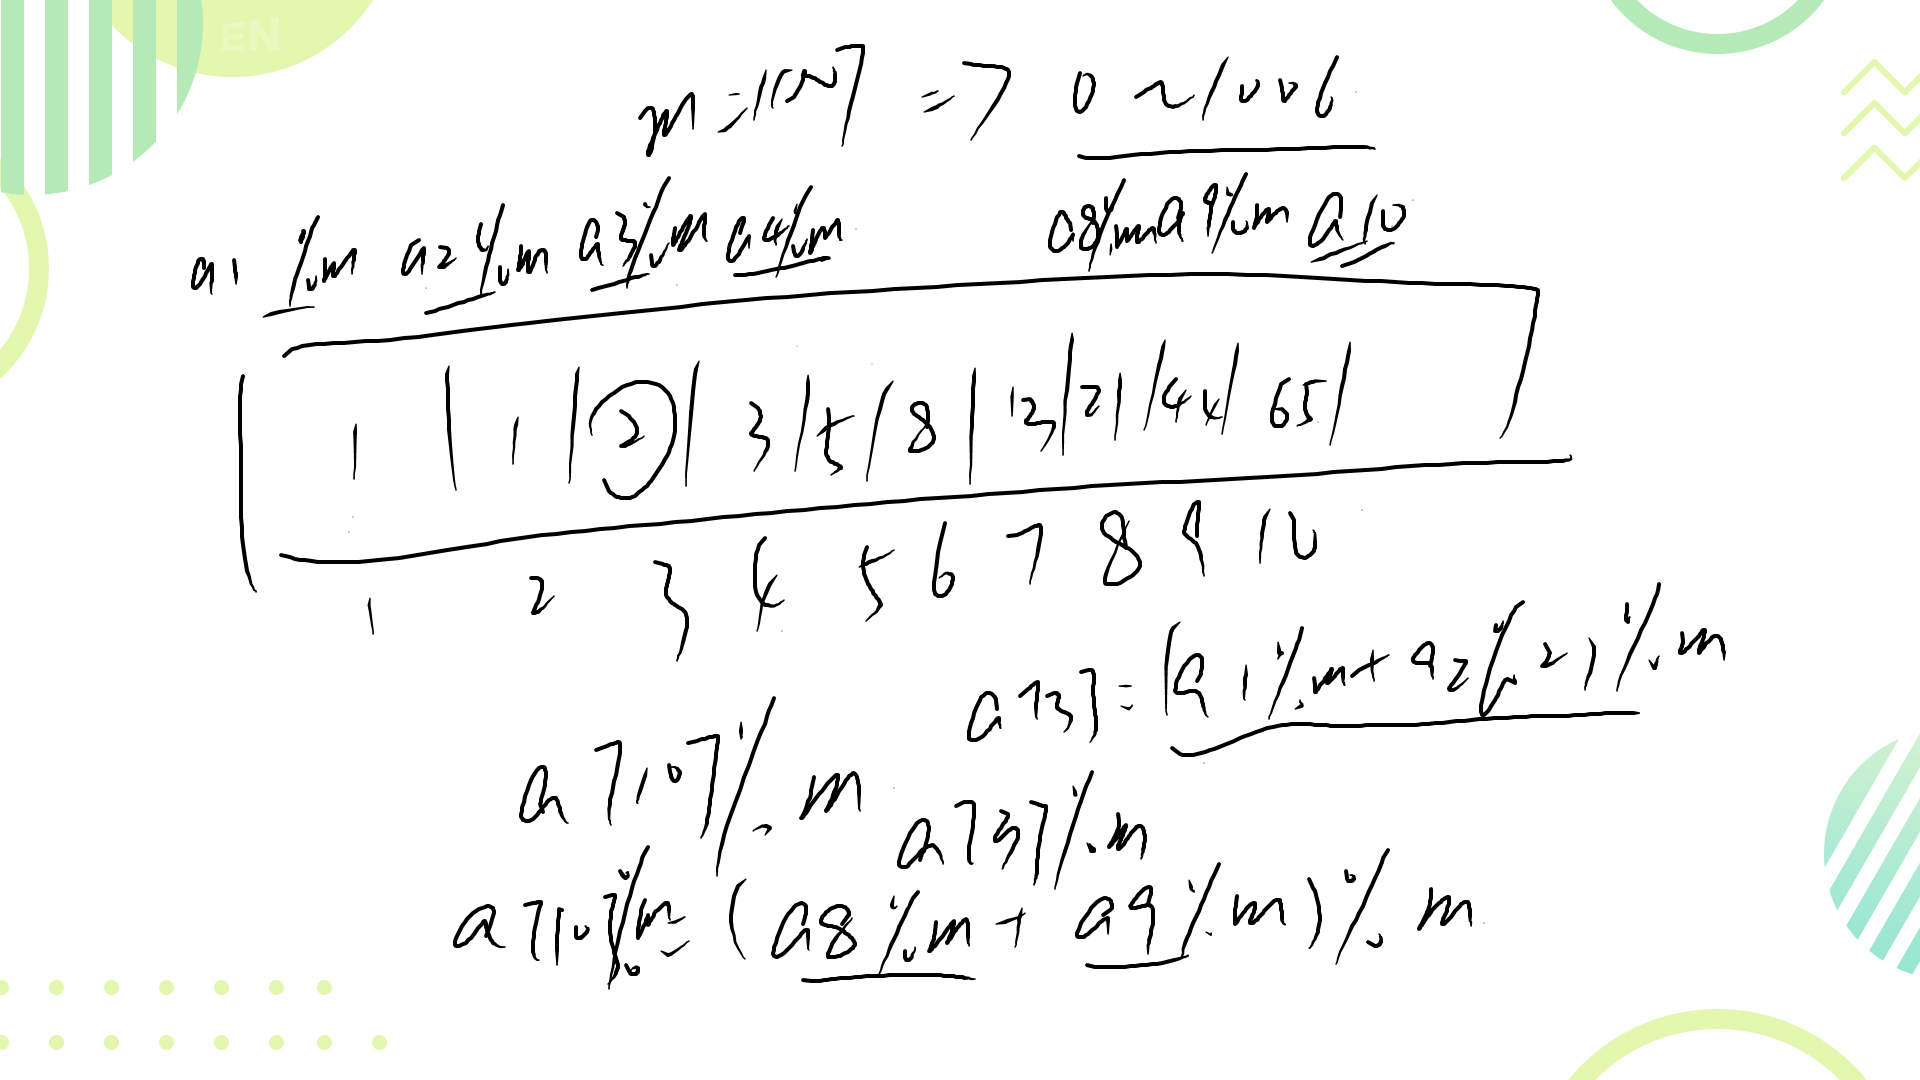 EN
m=1007 => 0~1006
a1 %m a2%m a3%m a4%m a8%m a9%m a10
1 | 1 | 2 | 3 | 5 | 8 | 13 | 21 | 44 | 65 |
1 2 3 4 5 6 7 8 9 10
a[3]=(a1%m+a2%2)%m
a[10]%m
a[3]%m
a[10]%m=(a8%m+a9%m)%m